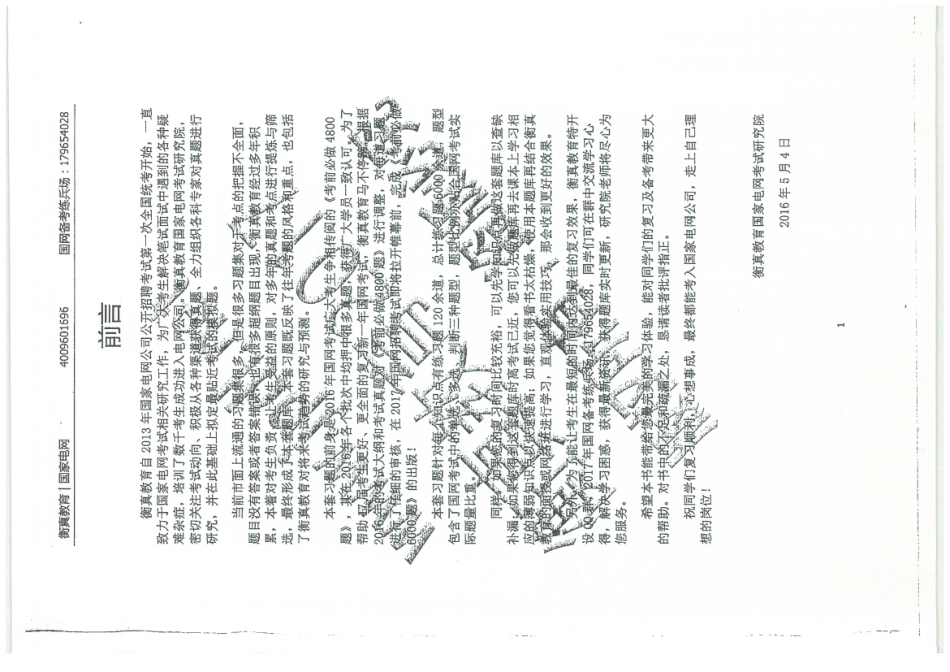 衡真教育 | 国家电网 4009601696 国网备考练兵场：179654028
前言
衡真教育自 2013 年国家电网公司公开招聘考试第一次全国统考开始，一直
致力于国家电网考试相关研究工作，为广大考生解决笔试面试中遇到的各种疑
难杂症，培训了数千考生成功进入电网公司。衡真教育国家电网考试研究院，
密切关注考试动向、积极从各种渠道获得真题、全力组织各科专家对真题进行
研究，并在此基础上拟定最贴近考试的模拟题。
当前市面上流通的习题集很多，但是很多习题集对于考点的把握不全面，
题目没有答案或者答案错误，也有很多超纲题目出现。衡真教育经过多年积
累，本着对考生负责，让考生受益的原则，对多年的真题和考点进行提炼与筛
选，最终形成了本套题库。本套习题既反映了往年考题的风格和重点，也包括
了衡真教育对将来考试趋势的研究与预测。
本套习题的前身是 2016 年国网考试广大考生争相传阅的《考前必做 4800
题》，其在 2016年各个批次中均押中很多真题，获得广大学员一致认可。为了
帮助 17 届考生更好、更全面的复习新一年国网考试，衡真教育马不停蹄，根据
2016 年的考试大纲和考试真题对《考前必做 4800 题》进行调整，对每道习题
进行了仔细的审核，在 2017 年国网招聘考试即将拉开帷幕前，完成《考前必做
6000 题》的出版！
本套习题针对每个知识点有练习题 120 余道，总计练习题 6000 余道，题型
包含了国网考试中的单选、多选、判断三种题型，题型比例亦贴合国网考试实
际题量比重。
同样，如果您的复习时间比较充裕，可以先学知识点再做这套题库以查缺
补漏；如果您得到这套题库时离考试已近，您可以先做题库再去课本上学习相
应的薄弱知识点以快速提高；如果您觉得看书太枯燥，使用本题库再结合衡真
教育的面授或网络班进行学习，直观体验实用技巧，那会收到更好的效果。
另外，为了能让考生在最短的时间内达到最佳的复习效果，衡真教育特开
设 QQ 群：“2017年国网备考练兵场：179654028，同学们可在群中交流学习心
得，解决学习困惑，获得最新资讯，获得题库实时更新，研究院老师将尽心为
您服务。
希望本书能带给您最完美的学习体验，能对同学们的复习及备考带来更大
的帮助，对书中的不足和疏漏之处，恳请读者批评指正。
祝同学们复习顺利，心想事成，最终都能考入国家电网公司，走上自己理
想的岗位！
衡真教育国家电网考试研究院
2016 年 5 月 4 日
1